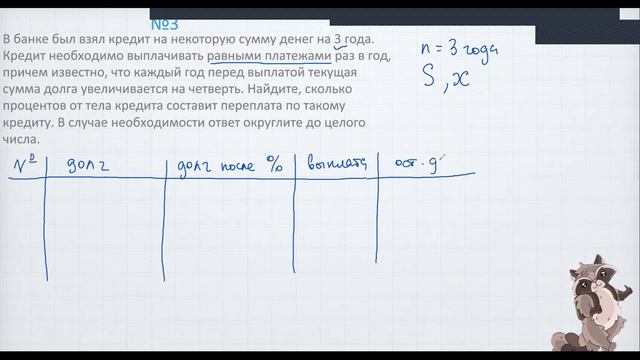 №3
В банке был взял кредит на некоторую сумму денег на 3 года.
Кредит необходимо выплачивать равными платежами раз в год,
причем известно, что каждый год перед выплатой текущая
сумма долга увеличивается на четверть. Найдите, сколько
процентов от тела кредита составит переплата по такому
кредиту. В случае необходимости ответ округлите до целого
числа.
n = 3 года
S, x
№ долг долг после % выплата ост. д